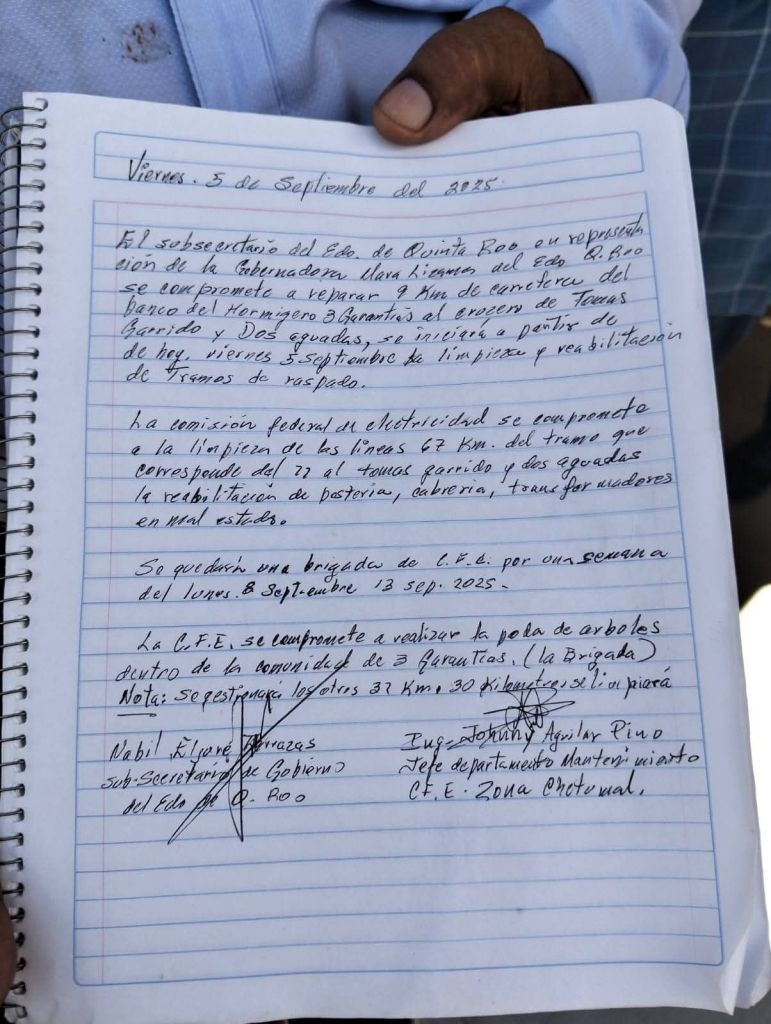 Viernes. 5 de Septiembre del 2025.
El subsecretario del Edo. de Quinta Roo en representa
ción de la Gobernadora Mara Lezama del Edo Q. Roo
se compromete a reparar 9 Km de carretera del
banco del Hormigero 3 Garantias al crucero de Tomas
Garrido y Dos aguadas, se iniciará a partir de
de hoy. viernes 5 septiembre la limpieza y reabilitación
de Tramos de raspado.
La comisión federal de electricidad se compromete
a la limpieza de las lineas 67 Km. del tramo que
corresponde del 22 al tomas garrido y dos aguadas
la reabilitación de posteria, cableria, transformadores
en mal estado.
Se quedará una brigada de C.F.E. por una semana
del lunes. 8 Septiembre 13 sep. 2025.
La C.F.E. se compromete a realizar la poda de arboles
dentro de la comunidad de 3 Garantias. (la Brigada)
Nota: se gestionará los otros 37 Km. 30 Kilometros se limpiará
Nabil Eljure Terrazas
Sub-Secretario de Gobierno
del Edo de Q. Roo
Ing. Johnny Aguilar Pino
Jefe departamento Mantenimiento
C.F.E. Zona Chetumal.